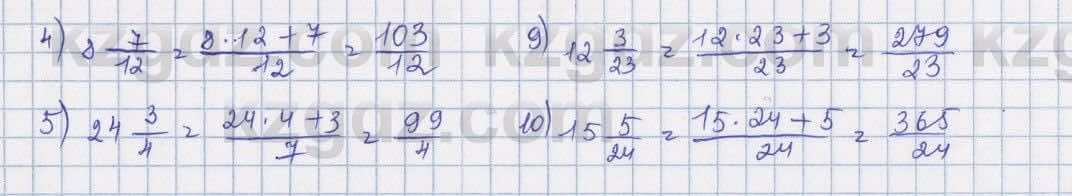 4) 8 7/12 = (8·12+7)/12 = 103/12
9) 12 3/23 = (12·23+3)/23 = 279/23
5) 24 3/4 = (24·4+3)/7 = 99/4
10) 15 5/24 = (15·24+5)/24 = 365/24
kzgdz.com